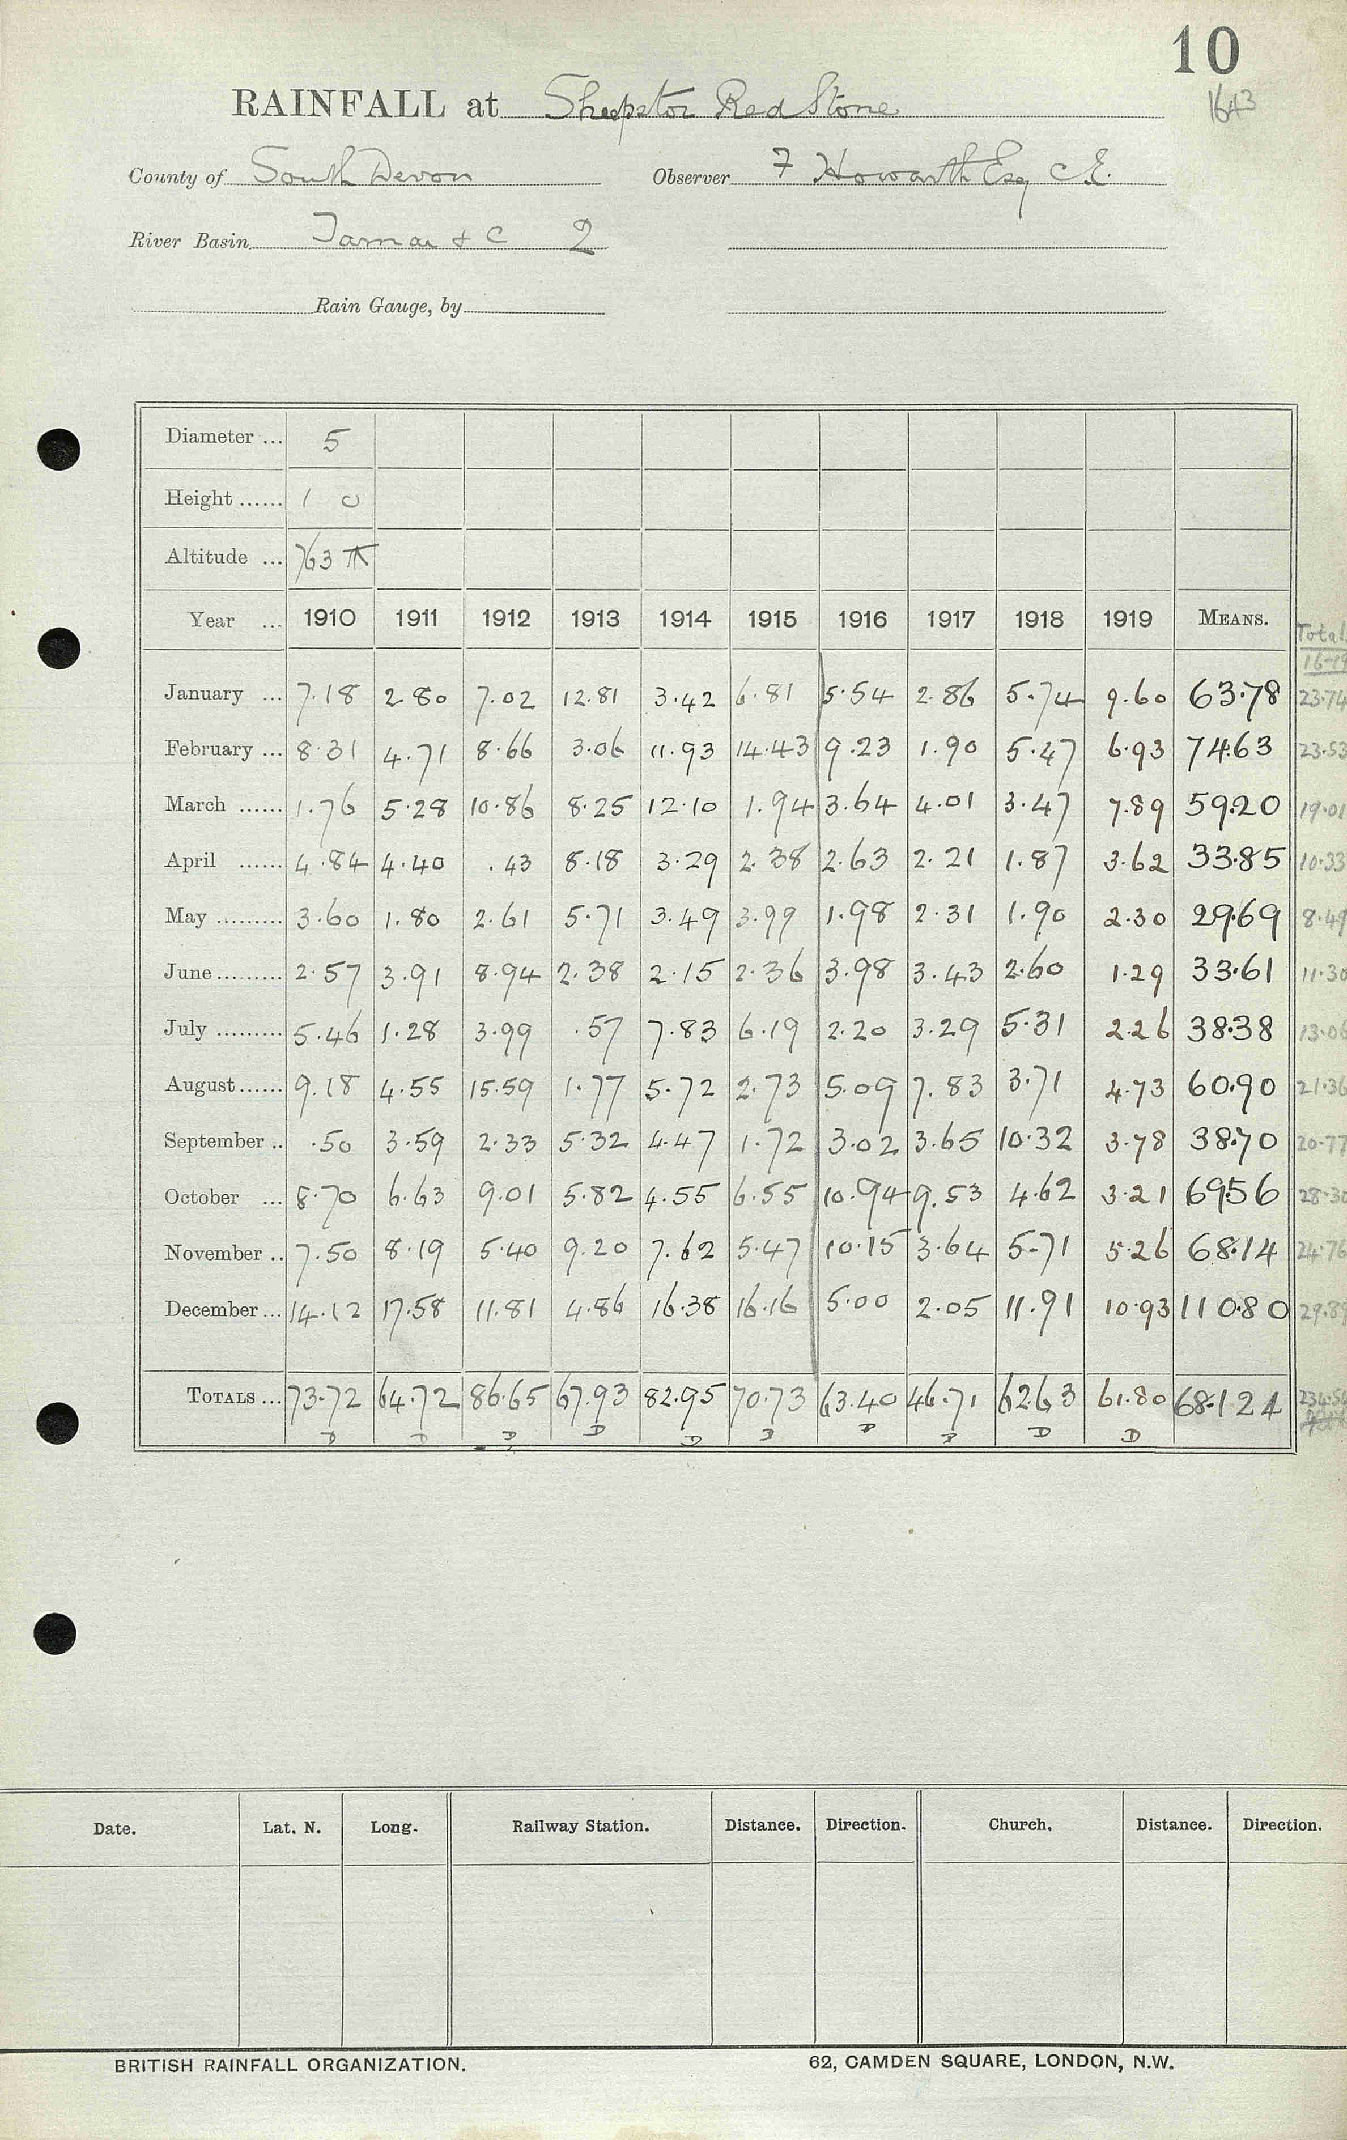 10
RAINFALL at Sheepstor Red Stone 1643
County of South Devon Observer F Howarth Esq C.E.
River Basin Tamar & C 2
Rain Gauge, by
Diameter ... 5
Height ...... 1 0
Altitude ... 763 ft
Year ... 1910 1911 1912 1913 1914 1915 1916 1917 1918 1919 MEANS. Total 16-19
January ... 7.18 2.80 7.02 12.81 3.42 6.81 5.54 2.86 5.74 9.60 63.78 23.74
February ... 8.31 4.71 8.66 3.06 11.93 14.43 9.23 1.90 5.47 6.93 74.63 23.53
March ...... 1.76 5.28 10.86 8.25 12.10 1.94 3.64 4.01 3.47 7.89 59.20 19.01
April ...... 4.84 4.40 .43 8.18 3.29 2.38 2.63 2.21 1.87 3.62 33.85 10.33
May ......... 3.60 1.80 2.61 5.71 3.49 3.99 1.98 2.31 1.90 2.30 29.69 8.49
June ......... 2.57 3.91 8.94 2.38 2.15 2.36 3.98 3.43 2.60 1.29 33.61 11.30
July ......... 5.46 1.28 3.99 .57 7.83 6.19 2.20 3.29 5.31 2.26 38.38 13.06
August ...... 9.18 4.55 15.59 1.77 5.72 2.73 5.09 7.83 3.71 4.73 60.90 21.36
September .. .50 3.59 2.33 5.32 4.47 1.72 3.02 3.65 10.32 3.78 38.70 20.77
October ... 8.70 6.63 9.01 5.82 4.55 6.55 10.94 9.53 4.62 3.21 69.56 28.30
November .. 7.50 8.19 5.40 9.20 7.62 5.47 10.15 3.64 5.71 5.26 68.14 24.76
December ... 14.12 17.58 11.81 4.86 16.38 16.16 5.00 2.05 11.91 10.93 110.80 29.89
TOTALS ... 73.72 64.72 86.65 67.93 82.95 70.73 63.40 46.71 62.63 61.80 68.124 234.54
D D D D D D D D D D
Date. Lat. N. Long. Railway Station. Distance. Direction. Church. Distance. Direction.
BRITISH RAINFALL ORGANIZATION. 62, CAMDEN SQUARE, LONDON, N.W.